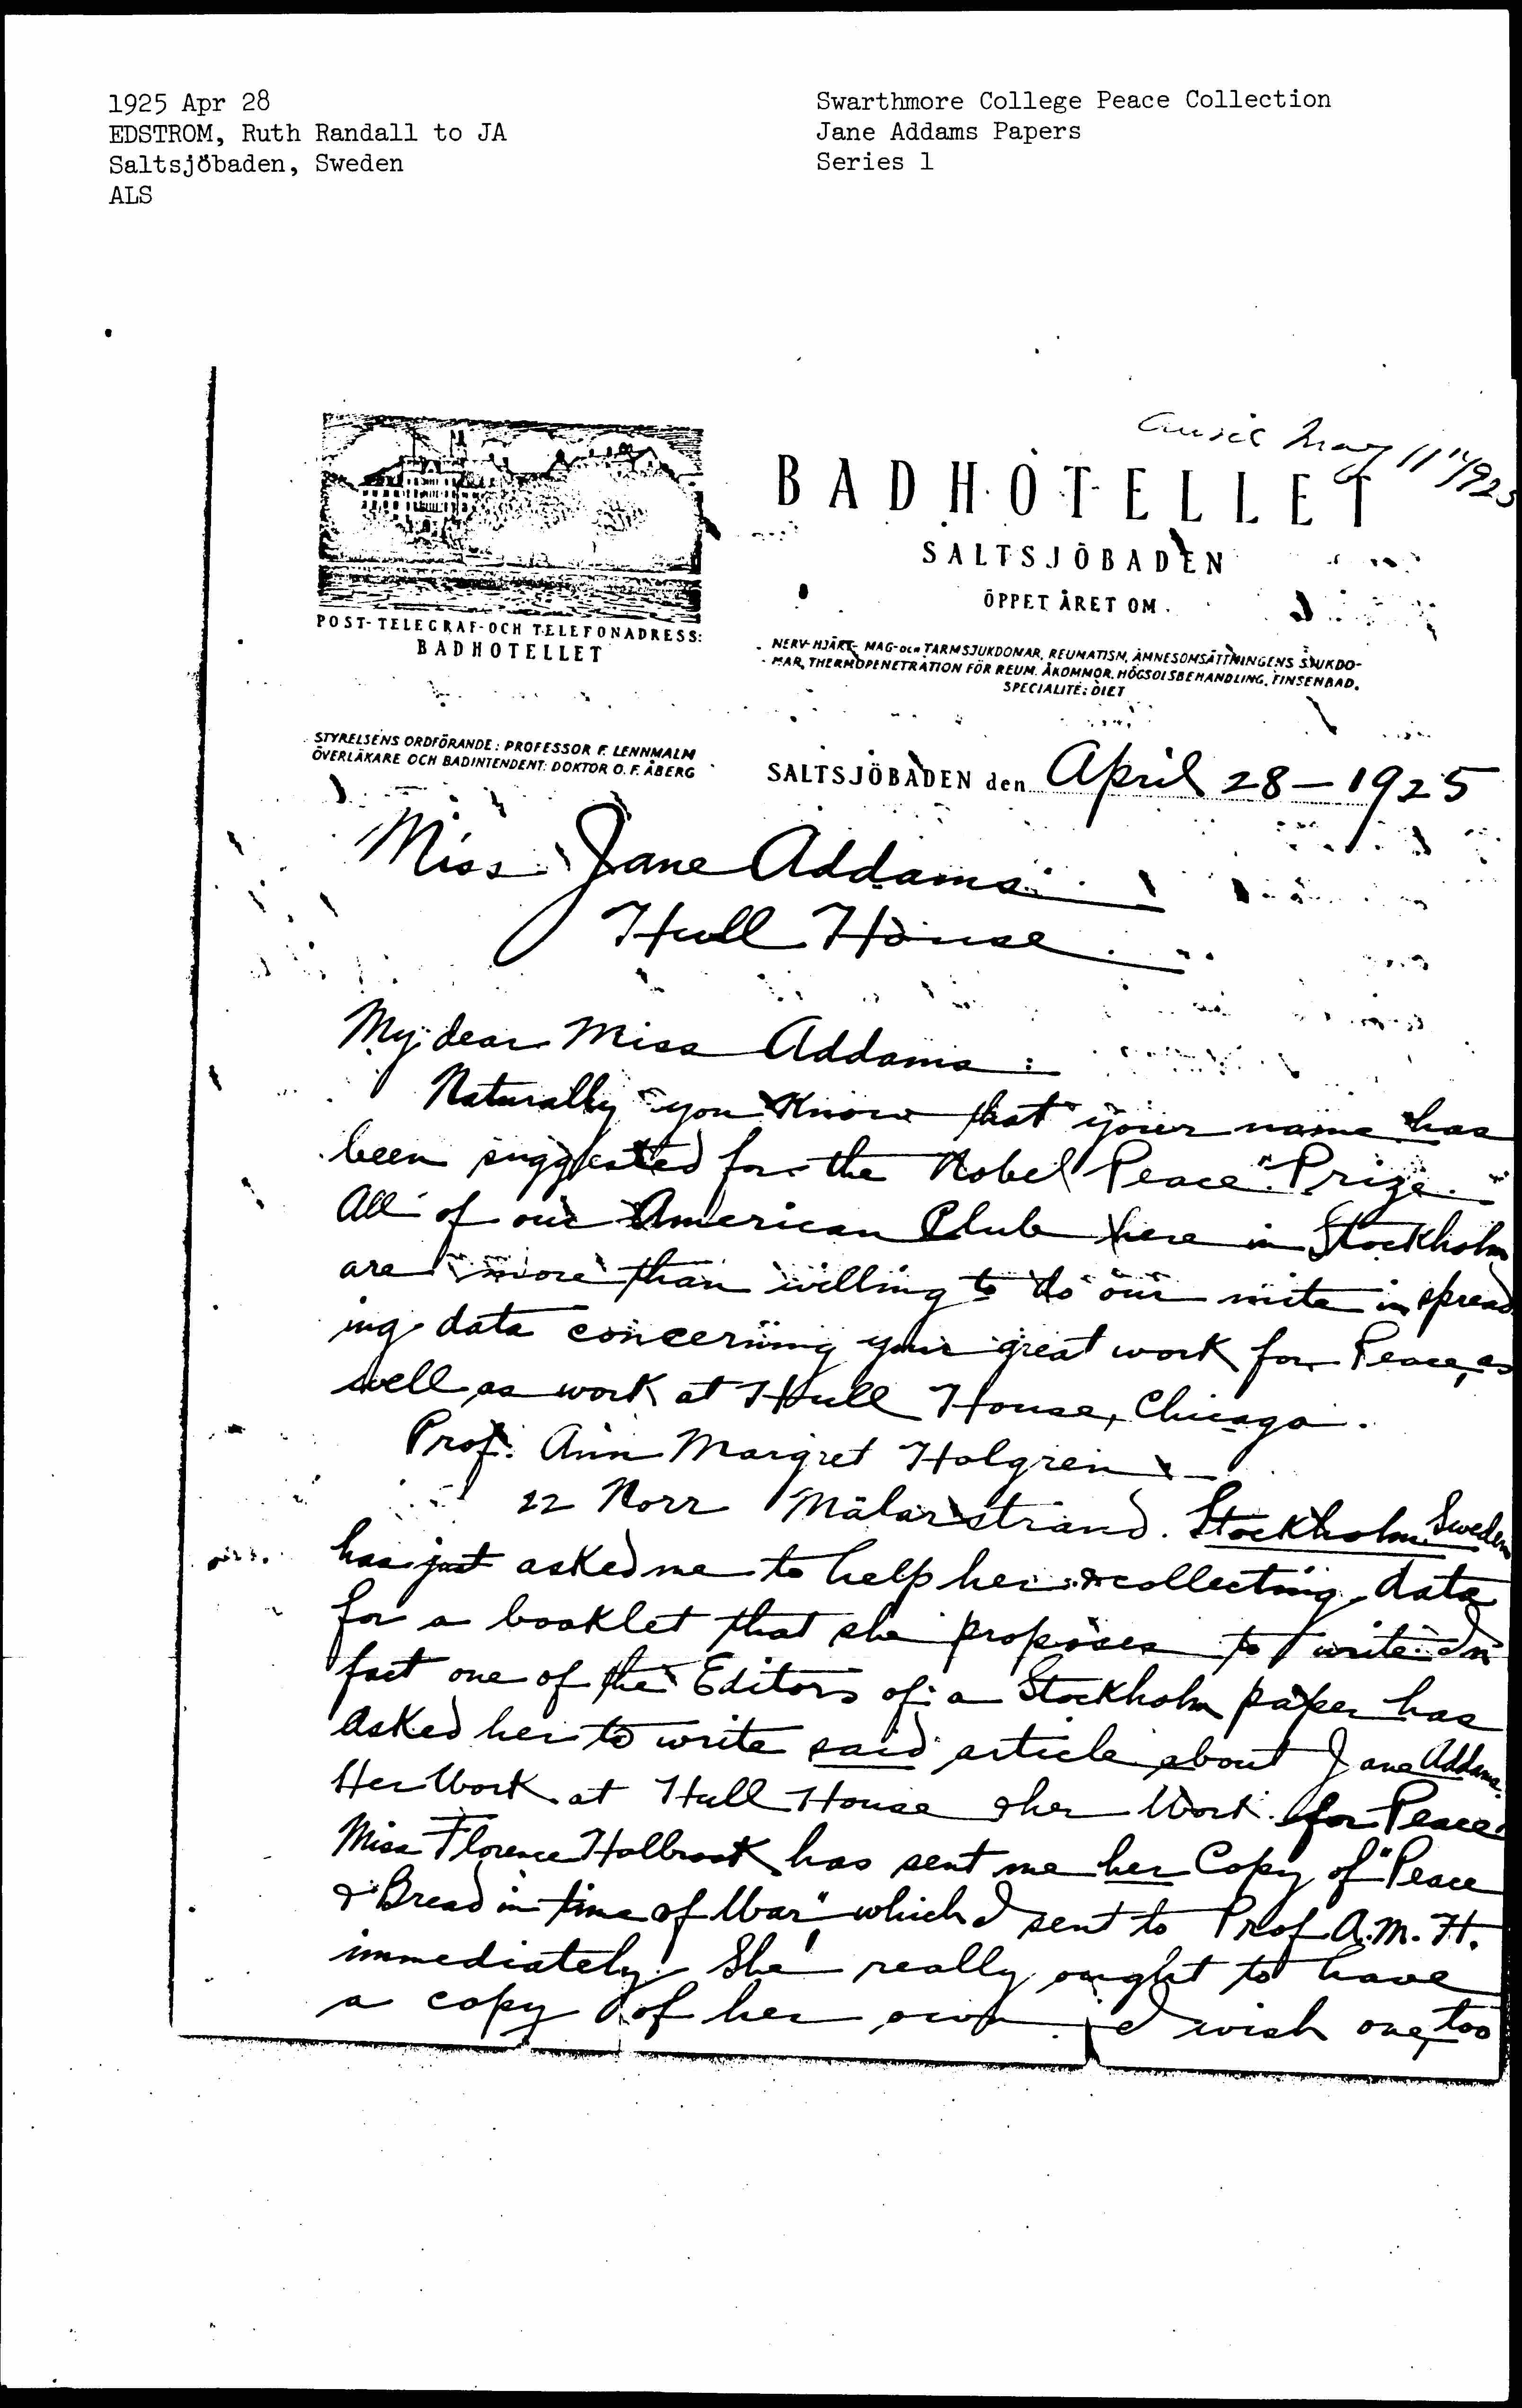 1925 Apr 28
EDSTROM, Ruth Randall to JA
Saltsjöbaden, Sweden
ALS
Swarthmore College Peace Collection
Jane Addams Papers
Series 1
May 11" 1925
BADHOTELLET
SALTSJÖBADEN
ÖPPET ÅRET OM.
POST-TELEGRAF-OCH TELEFONADRESS:
BADHOTELLET
NERV-HJÄRT- MAG-OCH TARMSJUKDOMAR, REUMATISM, ÄMNESOMSÄTTNINGENS SJUKDO-
MAR, THERMOPENETRATION FÖR REUM. ÅKOMMOR, HÖGSOLSBEHANDLING, FINSENBAD.
SPECIALITÉ: DIET
STYRELSENS ORDFÖRANDE: PROFESSOR F. LENNMALM
ÖVERLÄKARE OCH BADINTENDENT: DOKTOR O. F. ÅBERG
SALTSJÖBADEN den April 28 – 1925
Miss Jane Addams
Hull House
My dear Miss Addams:
Naturally you know that your name has
been suggested for the Nobel Peace Prize.
All of our American Club here in Stockholm
are more than willing to do our mite in spread
ing data concerning your great work for Peace, as
well as work at Hull House, Chicago.
Prof. Ann Margret Holgren –
22 Norr Mälarstrand. Stockholm Sweden
has just asked me to help her collecting data
for a booklet that she proposes to write. In
fact one of the Editors of a Stockholm paper has
asked her to write said article about Jane Addams.
Her Work at Hull House & her Work for Peace.
Miss Florence Holbrook has sent me her Copy of "Peace
& Bread in time of War" which I sent to Prof A.M.H.
immediately. She really ought to have
a copy of her own. I wish one, too